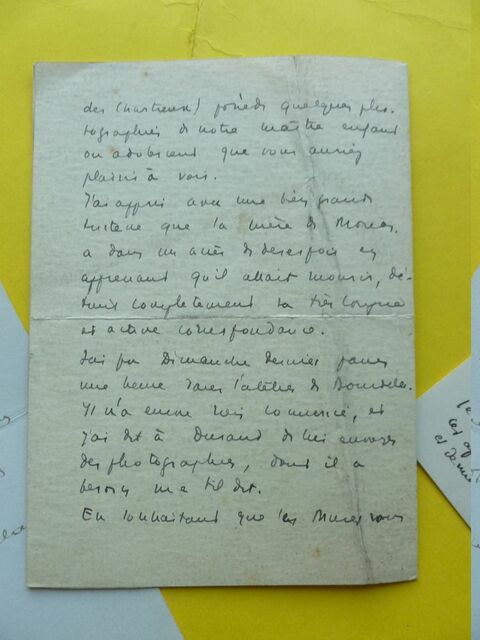 des Chartreux) possède quelques pho-
tographies de notre maître enfant
ou adolescent que vous auriez
plaisir à voir.
J'ai appris avec une bien grande
tristesse que la mère de Moréas
a dans un accès de désespoir en
apprenant qu'il allait mourir, dé-
truit complètement sa très longue
et active correspondance.
J'ai pu Dimanche dernier passer
une heure dans l'atelier de Bourdelle.
Il n'a encore rien commencé, et
j'ai dit à Durand de lui envoyer
des photographies, dont il a
besoin m'a-t-il dit.
En souhaitant que les Muses vous